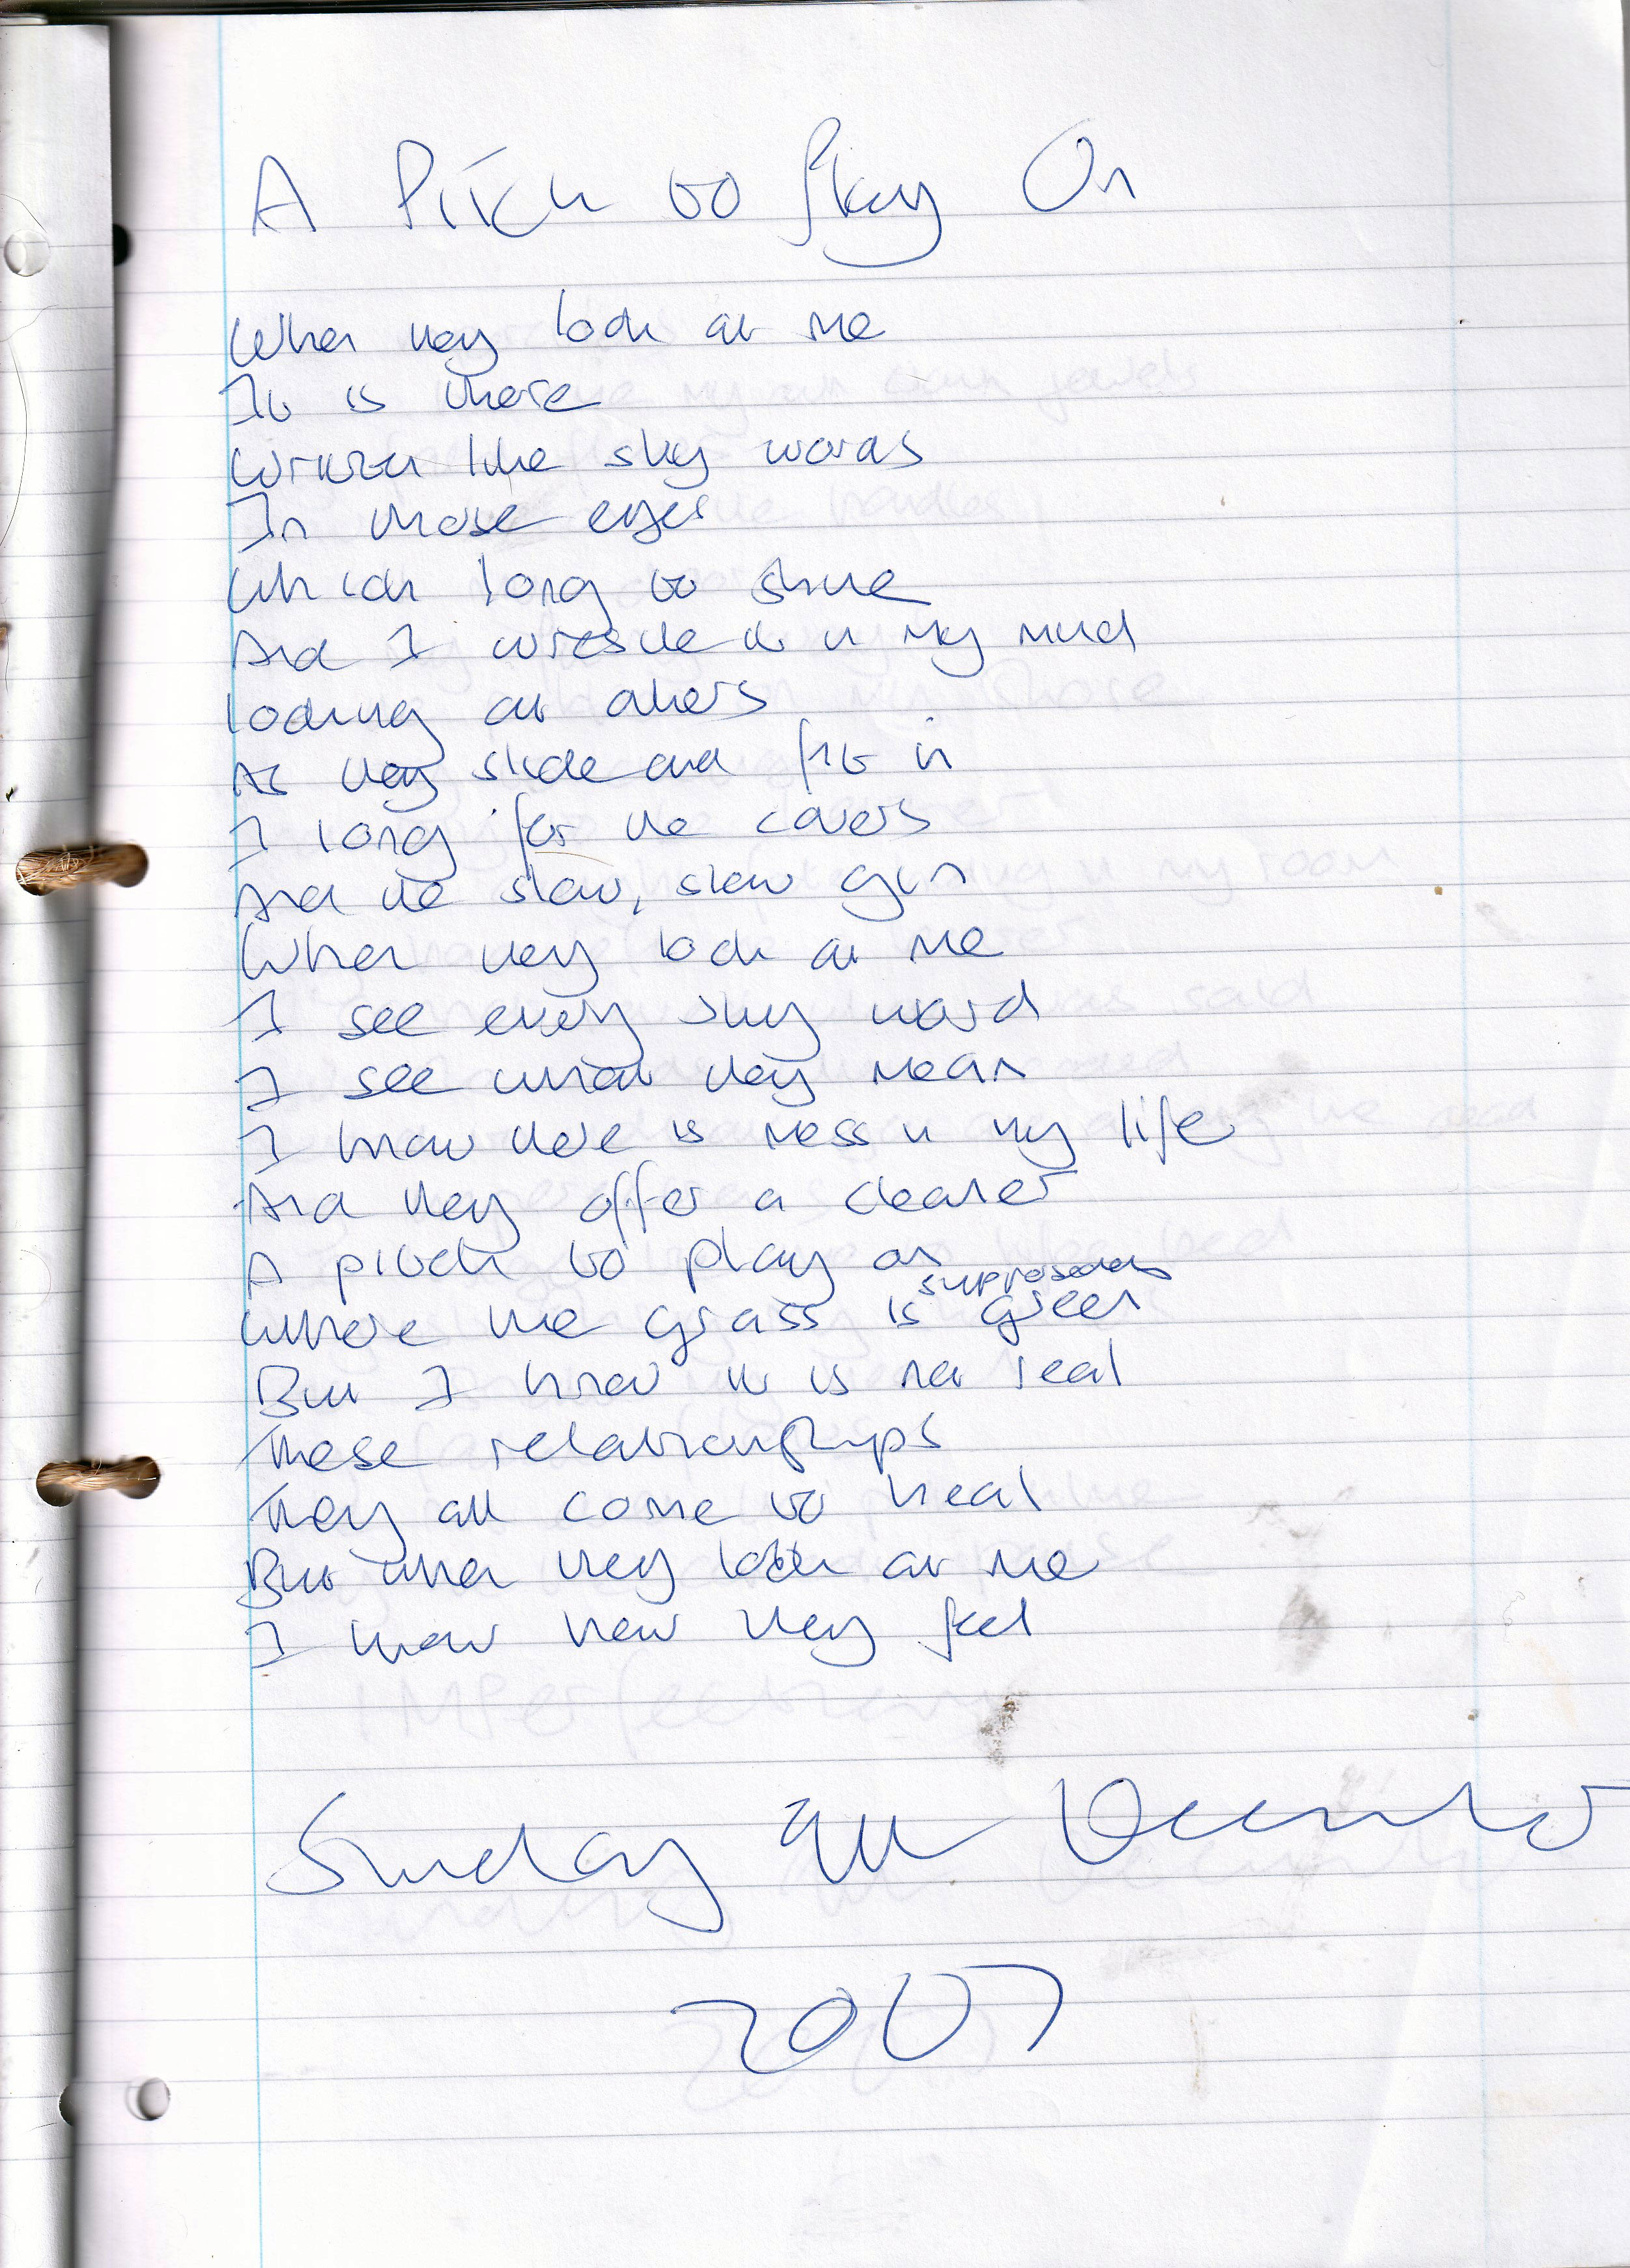 A Pitch to Play On
When they look at me
It is there
Written like sky words
In those eyes
Which long to shine
And I wrestle it in my mind
looking at others
As they slide and fit in
I long for the covers
And the slow, slow gin
When they look at me
I see every sky word
I see what they mean
I know there is mess in my life
And they offer a cleaner
A pitch to play on
supposedly
Where the grass is green
But I know it is not real
These relationships
They all come to heal
But when they look at me
I know how they feel
Sunday 9th December
2007